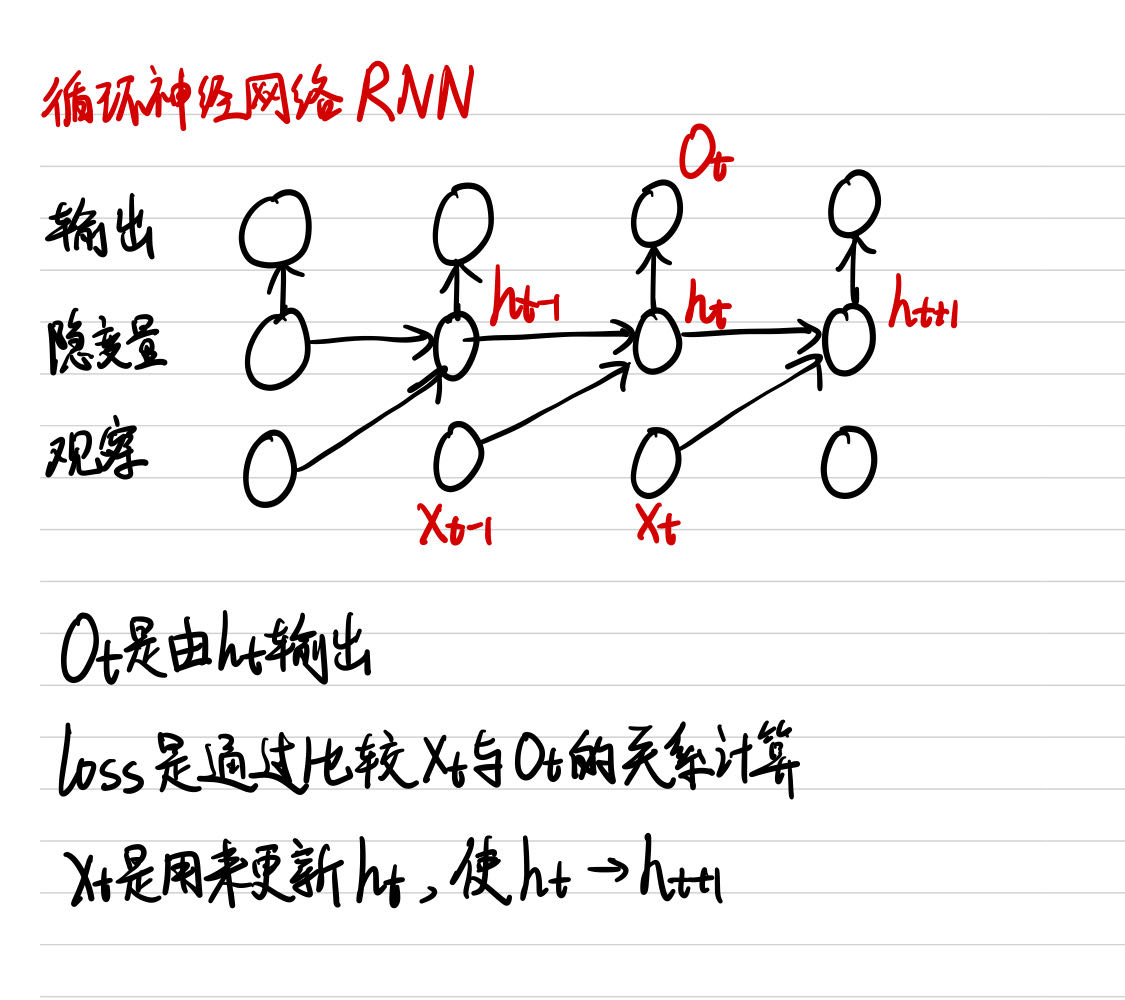 循环神经网络 RNN
Ot
输出
ht-1
ht
ht+1
隐变量
观察
xt-1
xt
Ot是由ht输出
loss是通过比较xt与Ot的关系计算
xt是用来更新ht,使ht→ht+1